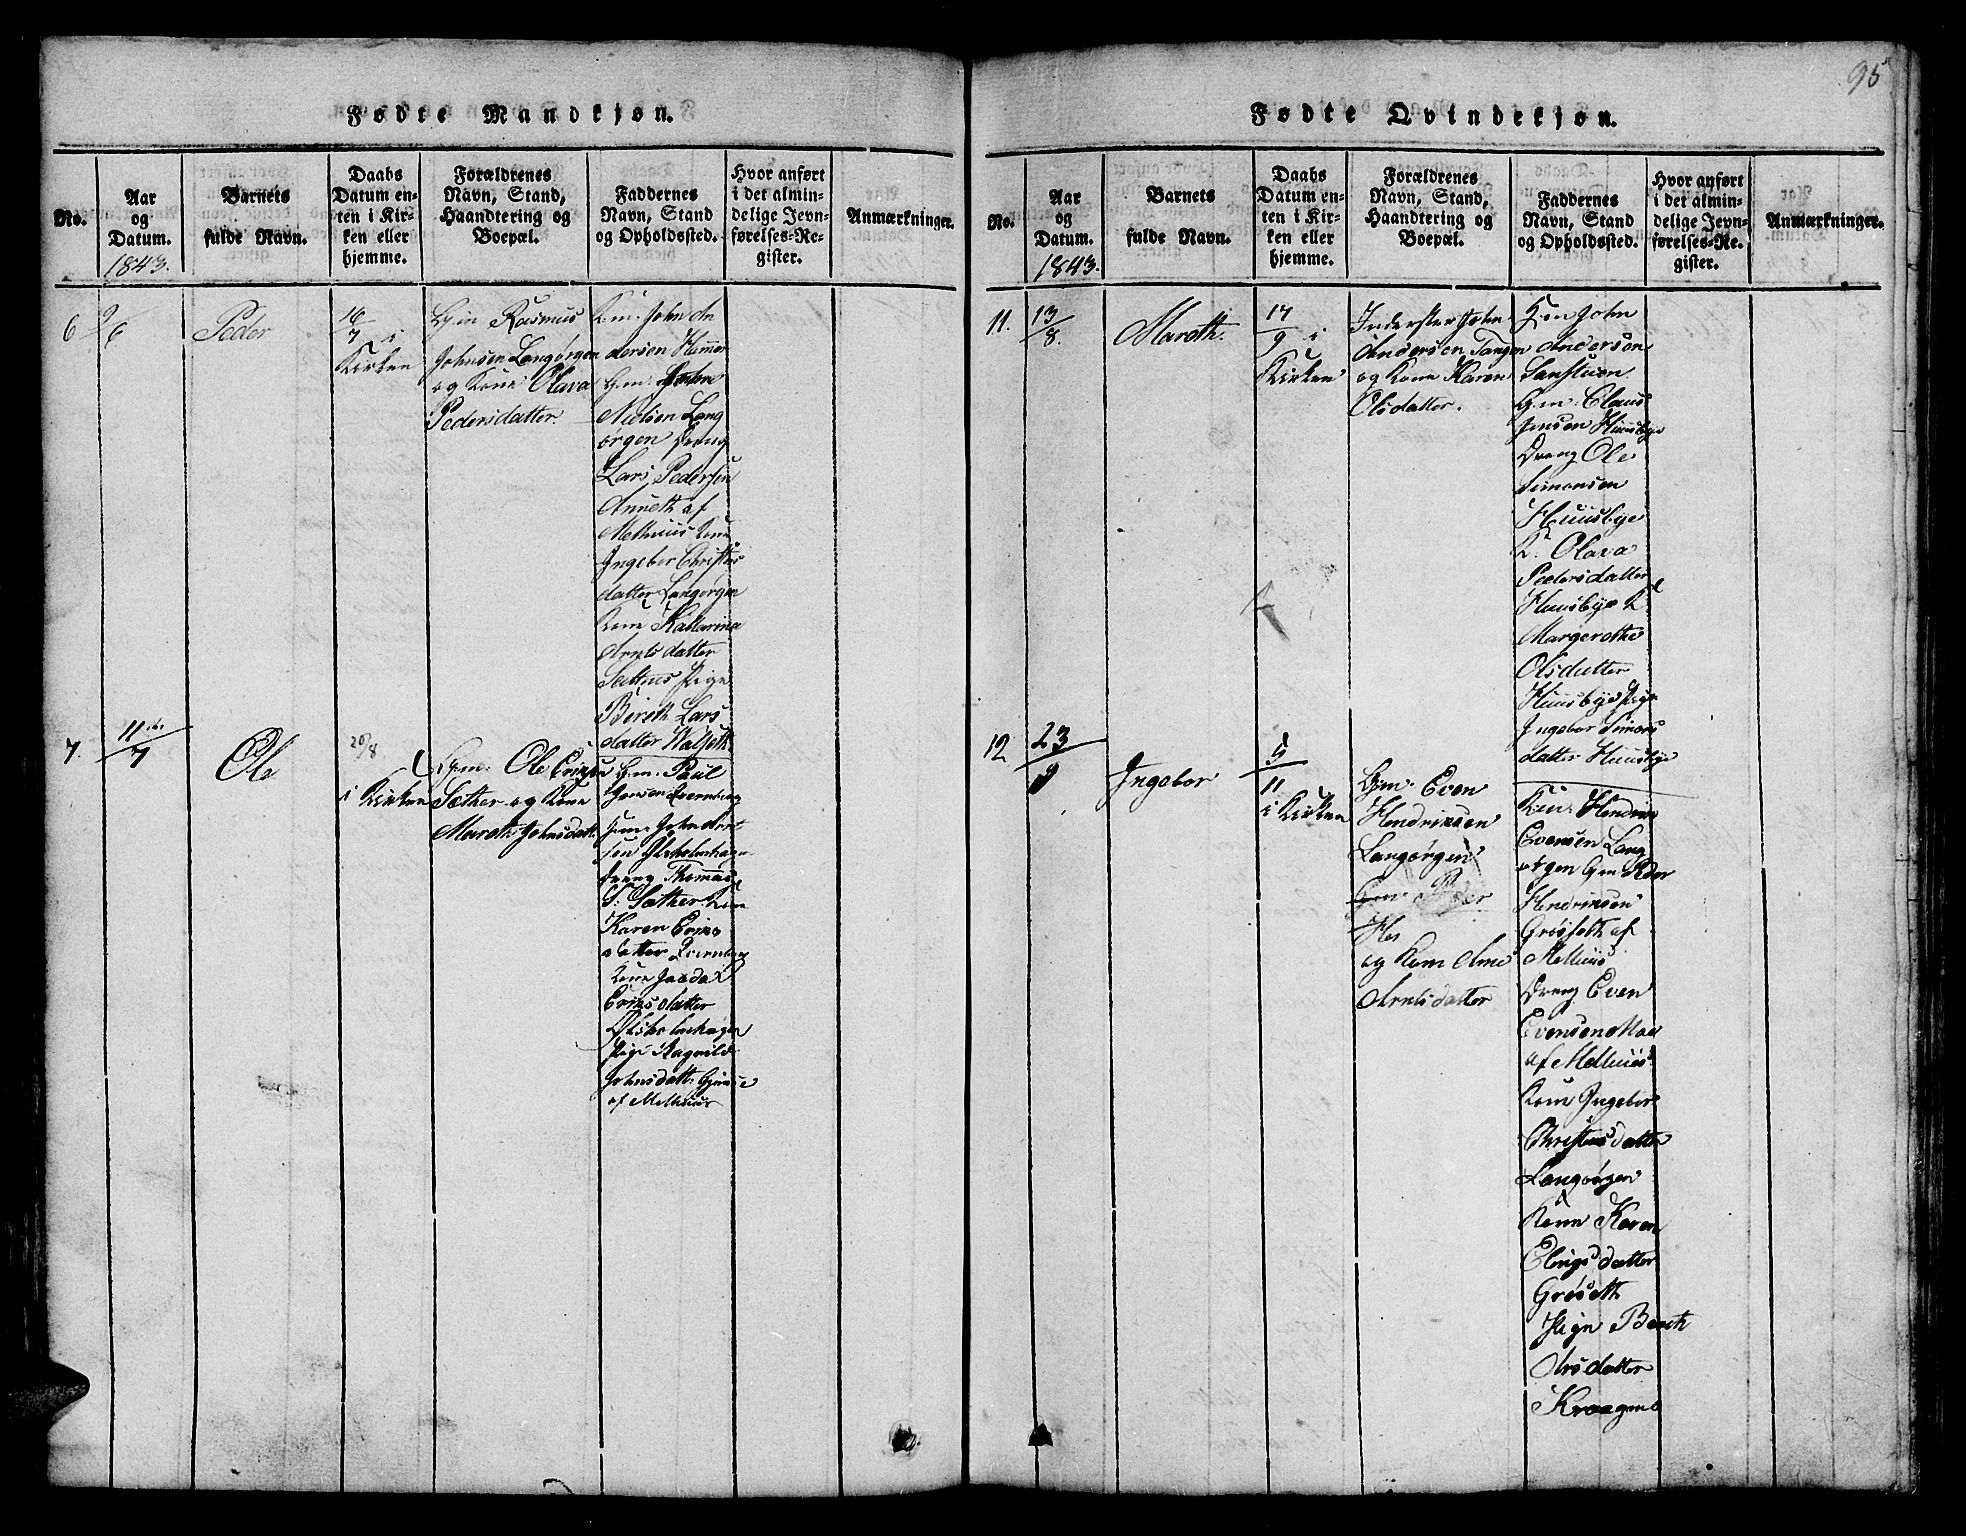 95
Fødte Mandkjøn.
No.
Aar
og
Datum.
1843.
Barnets
fulde Navn.
Daabs
Datum en-
ten i Kir-
ken eller
hjemme.
Forældrenes
Navn, Stand,
Haandtering og
Boepæl.
Faddernes
Navn, Stand
og Opholdssted.
Hvor anført
i det almin-
delige Jevn-
førelses-Re-
gister.
Anmærkninger.
6
9/6
Peder
16
7 i
Kirken
Gm Rasmus
Johnsen Langørgen
og Kone Olava
Pedersdatter.
John An
dersen Hammer
Gm:
Nielsen Lang
ørgen Dreng
Lars Pedersen
Anneth af
Melhuus Kone
Ingebor Christens
datter Langørgen
Kone Katharina
Arntsdatter
Sættnes Pige
Bereth Lars
datter
7.
11te
7
Ole
20/8
i Kirken
Gm: Ole Ericsen
Sæther og Kone
Mareth Johnsdatt:
Gm: Paul
Jensen Qvernberg
Gm: John Arnt
sen
Dreng Thomas
S: Sæther Kone
Karen Erics
datter Qvernberg
Kone
Ericsdatter
Pige Ragnild
Johnsdatt: Gjimse
af Melhuus
Fødte Qvindekjøn.
No.
Aar
og
Datum.
1843.
Barnets
fulde Navn.
Daabs
Datum en-
ten i Kir-
ken eller
hjemme.
Forældrenes
Navn, Stand,
Haandtering og
Boepæl.
Faddernes
Navn, Stand
og Opholdssted.
Hvor anført
i det almin-
delige Jevn-
førelses-Re-
gister.
Anmærkninger.
11.
13
8.
Mareth.
17
9 i
Kirken
Inderster John
Andersen Tangen
og Kone Karen
Olsdatter.
Gm John
Andersen
Sanstuen
Gm: Claus
Jensen Huusbye
Dreng Ole
Simonsen
Huusbye
K: Olava
Pedersdatter
Huusbye K
Margerethe
Olsdatter
Huusbye Pige
Ingebor Simons
datter Huusbye
12
23
9
Ingebor
5
11
i Kirken
Gm: Even
Hendricsen
Langørgen
Gm:
og Kone Ane
Arntsdatter
Hendric
Evensen Lang
ørgen Gm Peder
Hendricsen
Grøseth af
Melhuus
Dreng Even
Evensen
af Melhuus
Kone Ingebor
Christensdatter
Langørgen
Kone Karen
Elingsdatter
Grøseth
Pige Bereth
datter